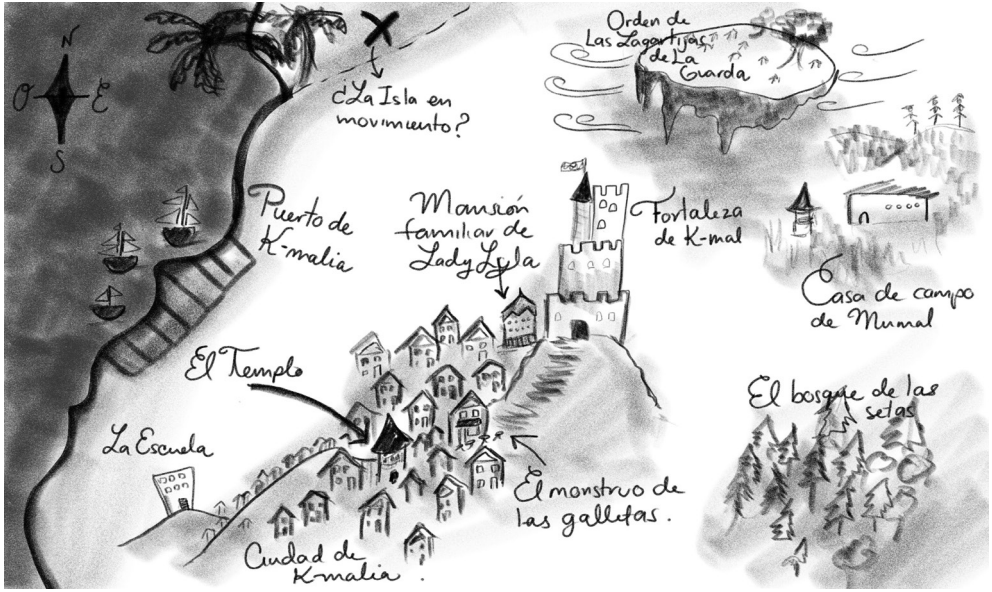 N
O
E
S
¿La Isla en
movimiento?
Orden de
Las Lagartijas
de La
Guarda
Puerto de
K-malia
Mansión
familiar de
Lady Lyla
Fortaleza
de K-mal
Casa de campo
de Mumal
El Templo
El bosque de las
setas
La Escuela
El monstruo de
las galletas.
Ciudad de
K-malia.